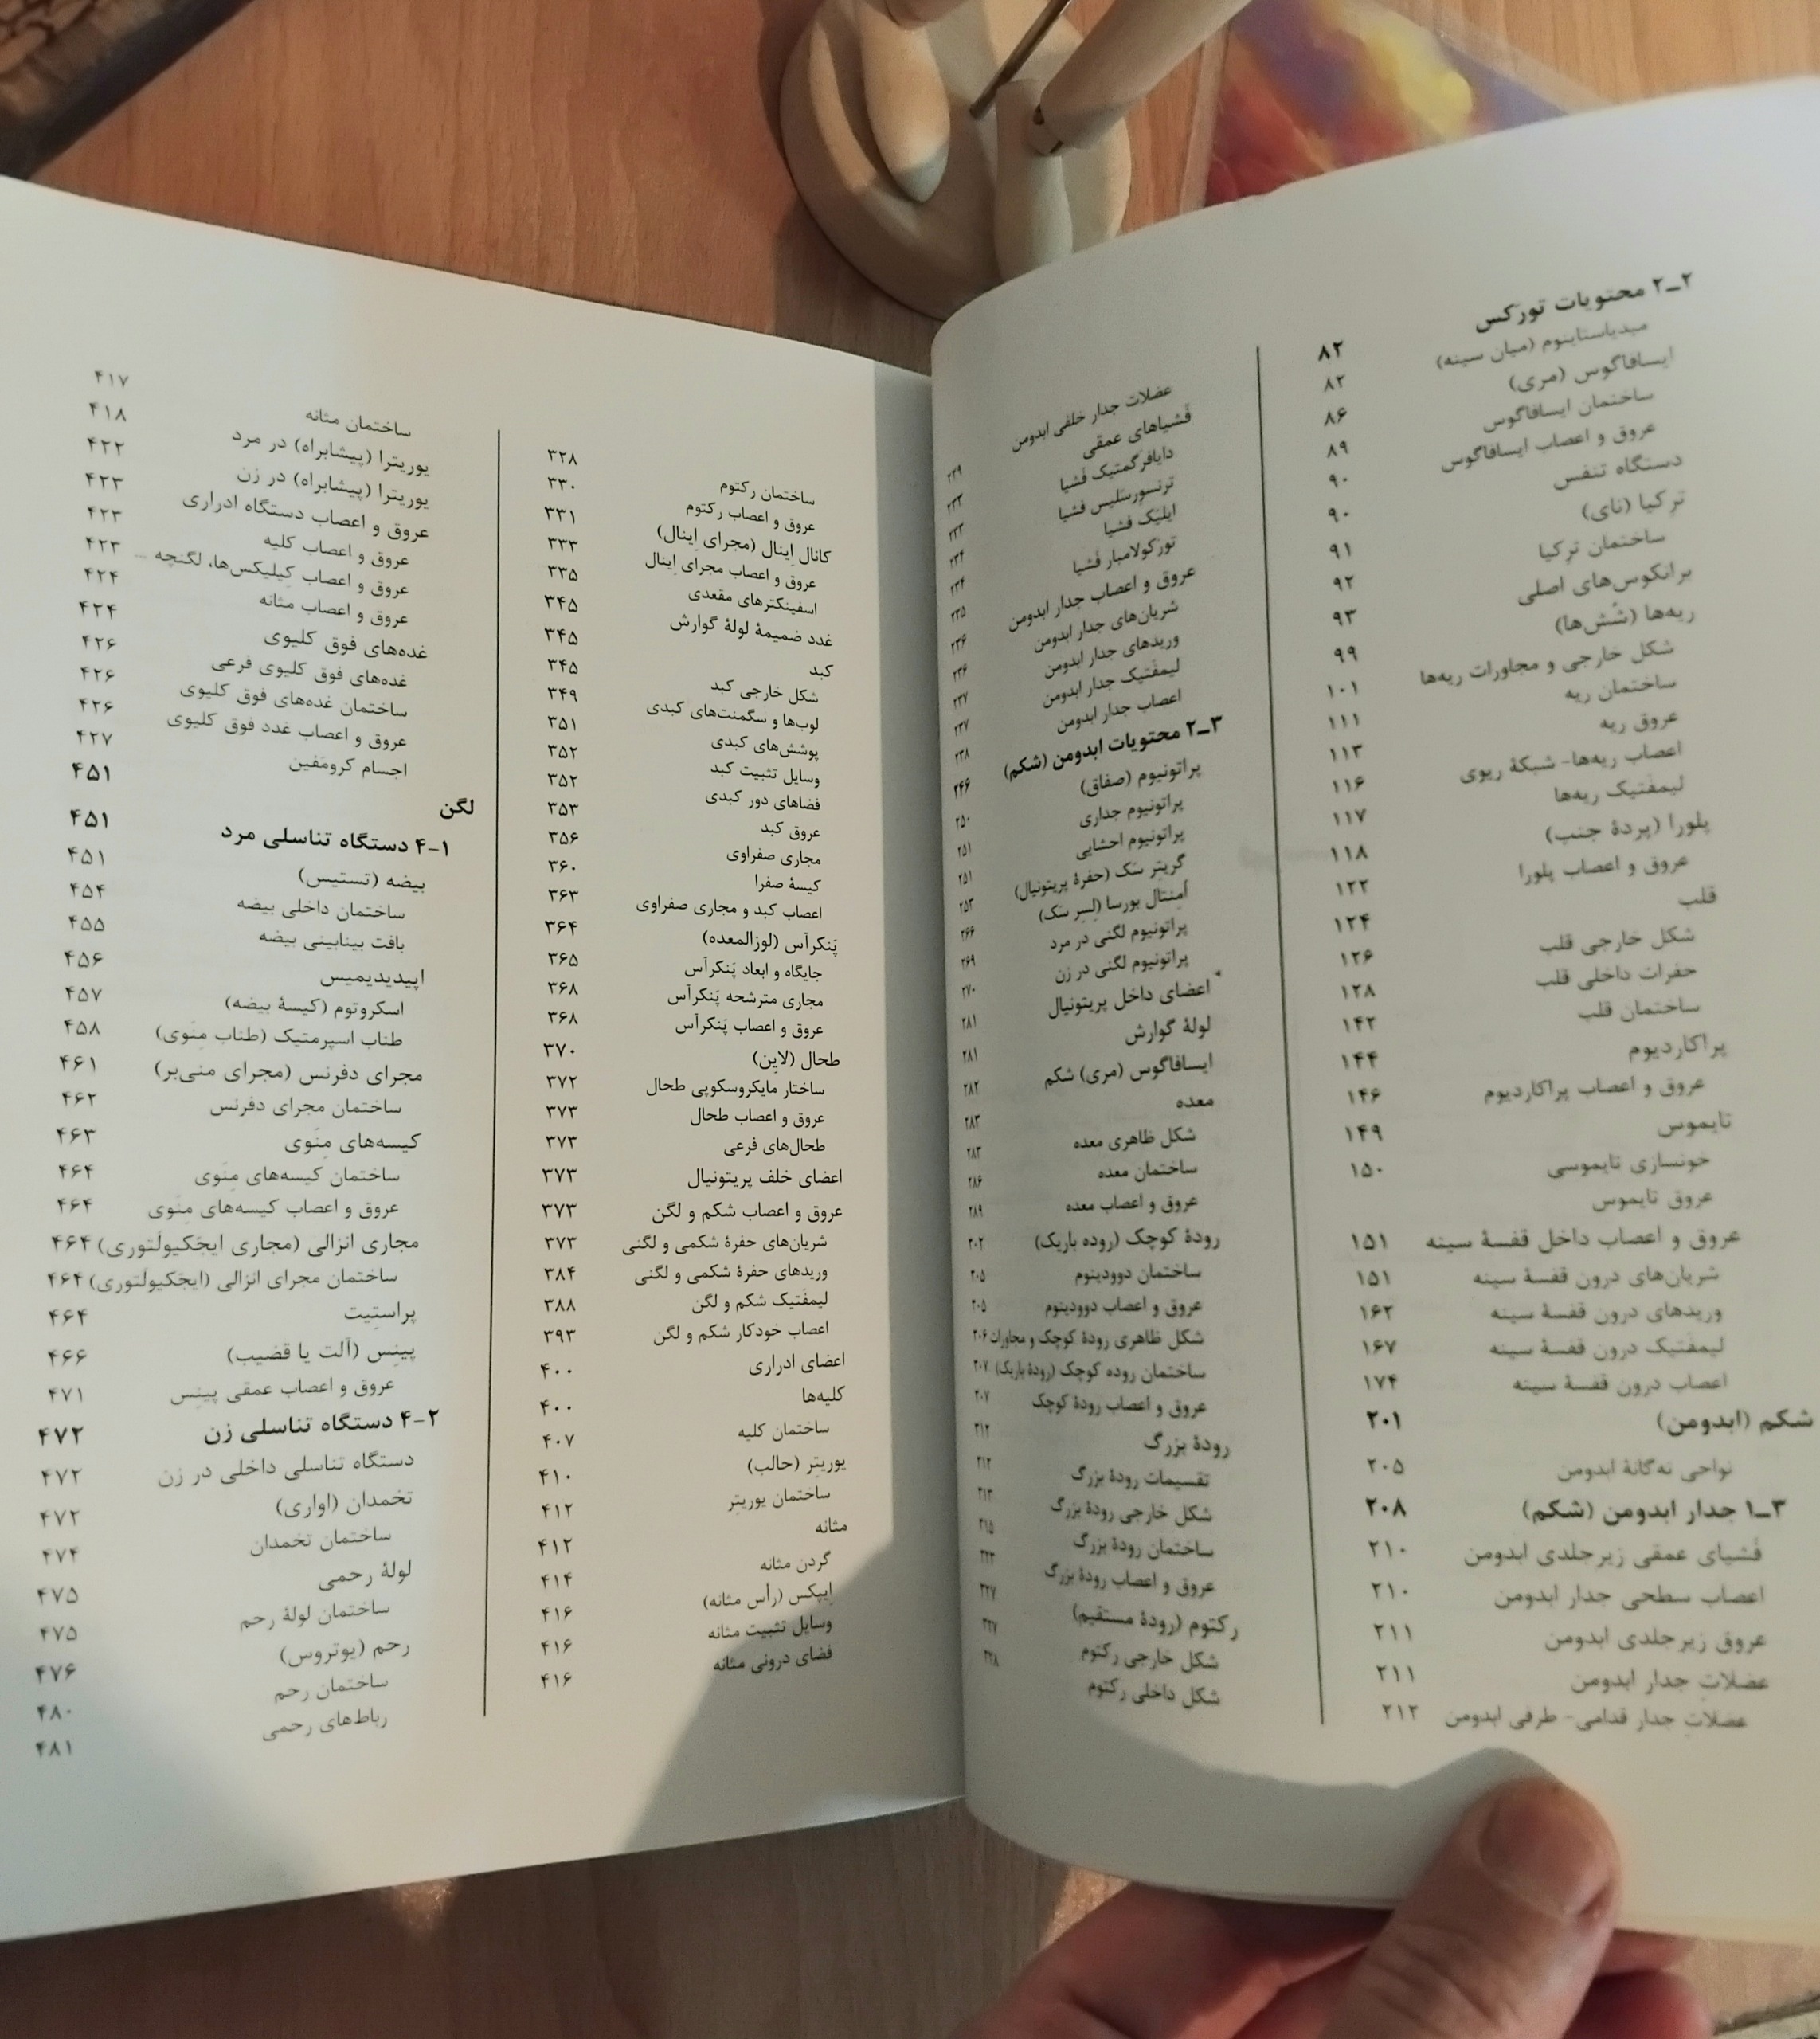 ۲ـ۲ محتویات تورَکس ۸۲
میدیاستاینوم (میان سینه) ۸۲
ایسافاگوس (مری) ۸۶
ساختمان ایسافاگوس ۸۹
عروق و اعصاب ایسافاگوس ۹۰
دستگاه تنفس ۹۰
ترکیا (نای) ۹۱
ساختمان ترکیا ۹۲
برانکوس‌های اصلی ۹۳
ریه‌ها (شُش‌ها) ۹۹
شکل خارجی و مجاورات ریه‌ها ۱۰۱
ساختمان ریه ۱۱۱
عروق ریه ۱۱۳
اعصاب ریه‌ها- شبکهٔ ریوی ۱۱۶
لیمفَتیک ریه‌ها ۱۱۷
پلورا (پردهٔ جنب) ۱۱۸
عروق و اعصاب پلورا ۱۲۲
قلب ۱۲۴
شکل خارجی قلب ۱۲۶
حفرات داخلی قلب ۱۲۸
ساختمان قلب ۱۴۲
پراکاردیوم ۱۴۴
عروق و اعصاب پراکاردیوم ۱۴۶
تایموس ۱۴۹
خونسازی تایموسی ۱۵۰
عروق تایموس
عروق و اعصاب داخل قفسهٔ سینه ۱۵۱
شریان‌های درون قفسهٔ سینه ۱۵۱
وریدهای درون قفسهٔ سینه ۱۶۲
لیمفَتیک درون قفسهٔ سینه ۱۶۷
اعصاب درون قفسهٔ سینه ۱۷۴
شکم (ابدومن) ۲۰۱
نواحی نه‌گانهٔ ابدومن ۲۰۵
۳ـ۱ جدار ابدومن (شکم) ۲۰۸
فَشیای عمقی زیرجلدی ابدومن ۲۱۰
اعصاب سطحی جدار ابدومن ۲۱۰
عروق زیرجلدی ابدومن ۲۱۱
عضلاتِ جدار ابدومن ۲۱۱
عضلاتِ جدار قدامی- طرفی ابدومن ۲۱۲
عضلات جدار خلفی ابدومن ۲۲۹
فَشیاهای عمقی ۲۳۳
دایافرگمتیک فَشیا ۲۳۳
ترنسورسَلیس فشیا ۲۳۴
ایلیَک فشیا ۲۳۴
تورَکولامبار فَشیا ۲۳۵
عروق و اعصاب جدار ابدومن ۲۳۶
شریان‌های جدار ابدومن ۲۳۶
وریدهای جدار ابدومن ۲۳۷
لیمفَتیک جدار ابدومن ۲۳۷
اعصاب جدار ابدومن ۲۳۸
۳ـ۲ محتویات ابدومن (شکم) ۲۴۶
پراتونیوم (صفاق) ۲۵۰
پراتونیوم جداری ۲۵۱
پراتونیوم احشایی ۲۵۱
گریتِر سَک (حفرهٔ پریتونیال) ۲۵۳
اُمِنتال بورسا (لِسِر سَک) ۲۶۶
پراتونیوم لگنی در مرد ۲۶۹
پراتونیوم لگنی در زن ۲۷۰
اعضای داخل پریتونیال ۲۸۱
لولهٔ گوارش ۲۸۱
ایسافاگوس (مری) شکم ۲۸۲
معده ۲۸۳
شکل ظاهری معده ۲۸۳
ساختمان معده ۲۸۶
عروق و اعصاب معده ۲۸۹
رودهٔ کوچک (روده باریک) ۳۰۲
ساختمان دوودینوم ۳۰۵
عروق و اعصاب دوودینوم ۳۰۵
شکل ظاهری رودهٔ کوچک و مجاورات ۳۰۶
ساختمان روده کوچک (رودهٔ باریک) ۳۰۷
عروق و اعصاب رودهٔ کوچک ۳۰۷
رودهٔ بزرگ ۳۱۲
تقسیمات رودهٔ بزرگ ۳۱۲
شکل خارجی رودهٔ بزرگ ۳۱۳
ساختمان رودهٔ بزرگ ۳۱۵
عروق و اعصاب رودهٔ بزرگ ۳۲۳
رکتوم (رودهٔ مستقیم) ۳۲۷
شکل خارجی رکتوم ۳۲۷
شکل داخلی رکتوم ۳۲۸
ساختمان رکتوم ۳۲۸
عروق و اعصاب رکتوم ۳۳۰
کانال اِینال (مجرای اِینال) ۳۳۱
عروق و اعصاب مجرای اِینال ۳۳۳
اسفینکترهای مقعدی ۳۳۵
غدد ضمیمهٔ لولهٔ گوارش ۳۴۵
کبد ۳۴۵
شکل خارجی کبد ۳۴۵
لوب‌ها و سگمنت‌های کبدی ۳۴۹
پوشش‌های کبدی ۳۵۱
وسایل تثبیت کبد ۳۵۲
فضاهای دور کبدی ۳۵۲
عروق کبد ۳۵۳
مجاری صفراوی ۳۵۶
کیسهٔ صفرا ۳۶۰
اعصاب کبد و مجاری صفراوی ۳۶۳
پَنکرآس (لوزالمعده) ۳۶۴
جایگاه و ابعاد پَنکرآس ۳۶۵
مجاری مترشحه پَنکرآس ۳۶۸
عروق و اعصاب پَنکرآس ۳۶۸
طحال (لایِن) ۳۷۰
ساختار مایکروسکوپی طحال ۳۷۲
عروق و اعصاب طحال ۳۷۳
طحال‌های فرعی ۳۷۳
اعضای خلف پریتونیال ۳۷۳
عروق و اعصاب شکم و لگن ۳۷۳
شریان‌های حفرهٔ شکمی و لگنی ۳۷۳
وریدهای حفرهٔ شکمی و لگنی ۳۸۴
لیمفَتیک شکم و لگن ۳۸۸
اعصاب خودکار شکم و لگن ۳۹۳
اعضای ادراری ۴۰۰
کلیه‌ها ۴۰۰
ساختمان کلیه ۴۰۷
یوریتِر (حالب) ۴۱۰
ساختمان یوریتِر ۴۱۲
مثانه ۴۱۲
گردن مثانه ۴۱۴
اِیپکس (رأس مثانه) ۴۱۶
وسایل تثبیت مثانه ۴۱۶
فضای درونی مثانه ۴۱۶
ساختمان مثانه ۴۱۷
یوریترا (پیشابراه) در مرد ۴۱۸
یوریترا (پیشابراه) در زن ۴۲۲
عروق و اعصاب دستگاه ادراری ۴۲۳
عروق و اعصاب کلیه ۴۲۳
عروق و اعصاب کیلیکس‌ها، لگنچه ... ۴۲۳
عروق و اعصاب مثانه ۴۲۴
غده‌های فوق کلیوی ۴۲۴
غده‌های فوق کلیوی فرعی ۴۲۶
ساختمان غده‌های فوق کلیوی ۴۲۶
عروق و اعصاب غدد فوق کلیوی ۴۲۶
اجسام کرومَفین ۴۲۷
لگن ۴۵۱
۴-۱ دستگاه تناسلی مرد ۴۵۱
بیضه (تستیس) ۴۵۱
ساختمان داخلی بیضه ۴۵۴
بافت بینابینی بیضه ۴۵۵
اپیدیدیمیس ۴۵۶
اسکروتوم (کیسهٔ بیضه) ۴۵۷
طناب اسپرمتیک (طناب مِنَوی) ۴۵۸
مجرای دفرنس (مجرای منی‌بر) ۴۶۱
ساختمان مجرای دفرنس ۴۶۲
کیسه‌های مِنَوی ۴۶۳
ساختمان کیسه‌های مِنَوی ۴۶۴
عروق و اعصاب کیسه‌های مِنَوی ۴۶۴
مجاری انزالی (مجاری ایجَکیولَتوری) ۴۶۴
ساختمان مجرای انزالی (ایجَکیولَتوری) ۴۶۴
پراستِیت ۴۶۴
پینِس (آلت یا قضیب) ۴۶۶
عروق و اعصاب عمقی پینِس ۴۷۱
۴-۲ دستگاه تناسلی زن ۴۷۲
دستگاه تناسلی داخلی در زن ۴۷۲
تخمدان (اواری) ۴۷۲
ساختمان تخمدان ۴۷۴
لولهٔ رحمی ۴۷۵
ساختمان لولهٔ رحم ۴۷۵
رحم (یوتروس) ۴۷۶
ساختمان رحم ۴۸۰
رباط‌های رحمی ۴۸۱